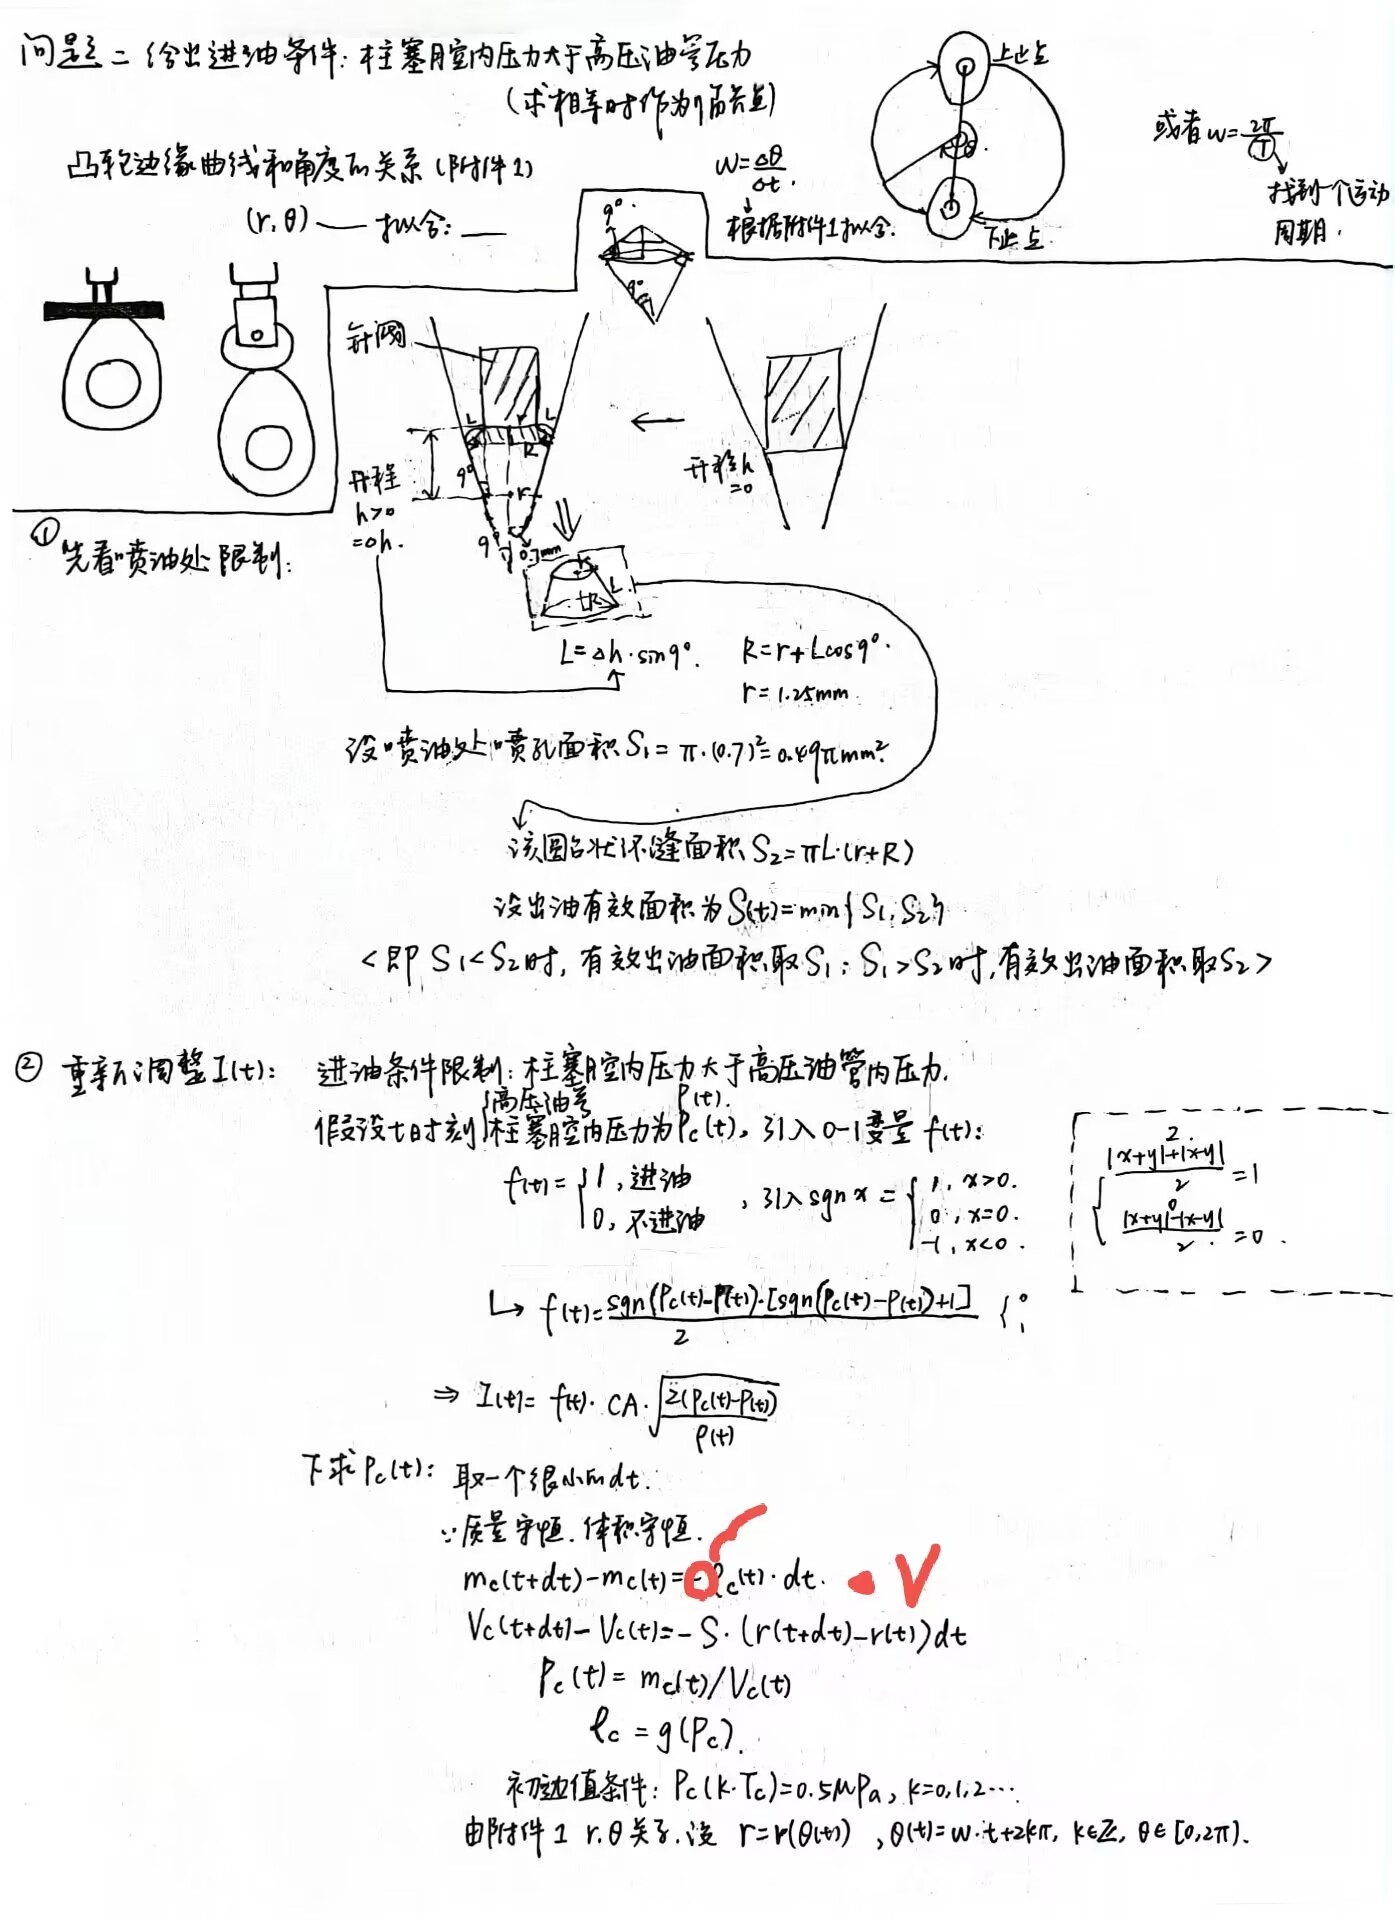 问题二 给出进油条件: 柱塞腔内压力大于高压油管压力
(求相等时作为临界点)
上止点
下止点
凸轮边缘曲线和角度的关系 (附件1)
(r, θ) —— 拟合: ——
w=Δθ/Δt.
根据附件1拟合.
或者 w=2π/T
找到一个运动
周期.
9°
9°
针阀
L r L
R
9°
r
开程
h>0
=Δh.
9°
0.7mm
开程h
=0
① 先看喷油处限制:
r
L
R
L=Δh·sin9°. R=r+Lcos9°.
r=1.25mm.
设喷油处喷孔面积 S₁=π·(0.7)²=0.49πmm².
该圆台状环缝面积 S₂=πL·(r+R)
设出油有效面积为 S(t)=min{S₁, S₂}
<即 S₁<S₂时, 有效出油面积取S₁; S₁>S₂时, 有效出油面积取S₂>
② 重新调整 I(t): 进油条件限制: 柱塞腔内压力大于高压油管内压力.
高压油管 P(t).
假设t时刻{柱塞腔内压力为Pc(t), 引入0-1变量 f(t):
f(t)={1, 进油 0, 不进油, 引入 sgn x={1, x>0. 0, x=0. -1, x<0.
2.
|x+y|+|x-y|/2=1
0
|x+y|-|x-y|/2.=0.
↳ f(t)=sgn(Pc(t)-P(t))·[sgn(Pc(t)-P(t))+1]/2 {0 1
⇒ I(t)= f(t)· CA·√2(Pc(t)-P(t))/ρ(t)
下求Pc(t): 取一个很小的dt.
∵质量守恒. 体积守恒.
mc(t+dt)-mc(t)=-Qc(t)·dt. · V
Vc(t+dt)-Vc(t)=-S·(r(t+dt)-r(t))dt
Pc(t)=mc(t)/Vc(t)
ρc=g(Pc).
初边值条件: Pc(k·Tc)=0.5MPa, k=0,1,2…
由附件1 r.θ关系. 设 r=r(θ(t)), θ(t)=w·t+2kπ, k∈Z, θ∈[0,2π).